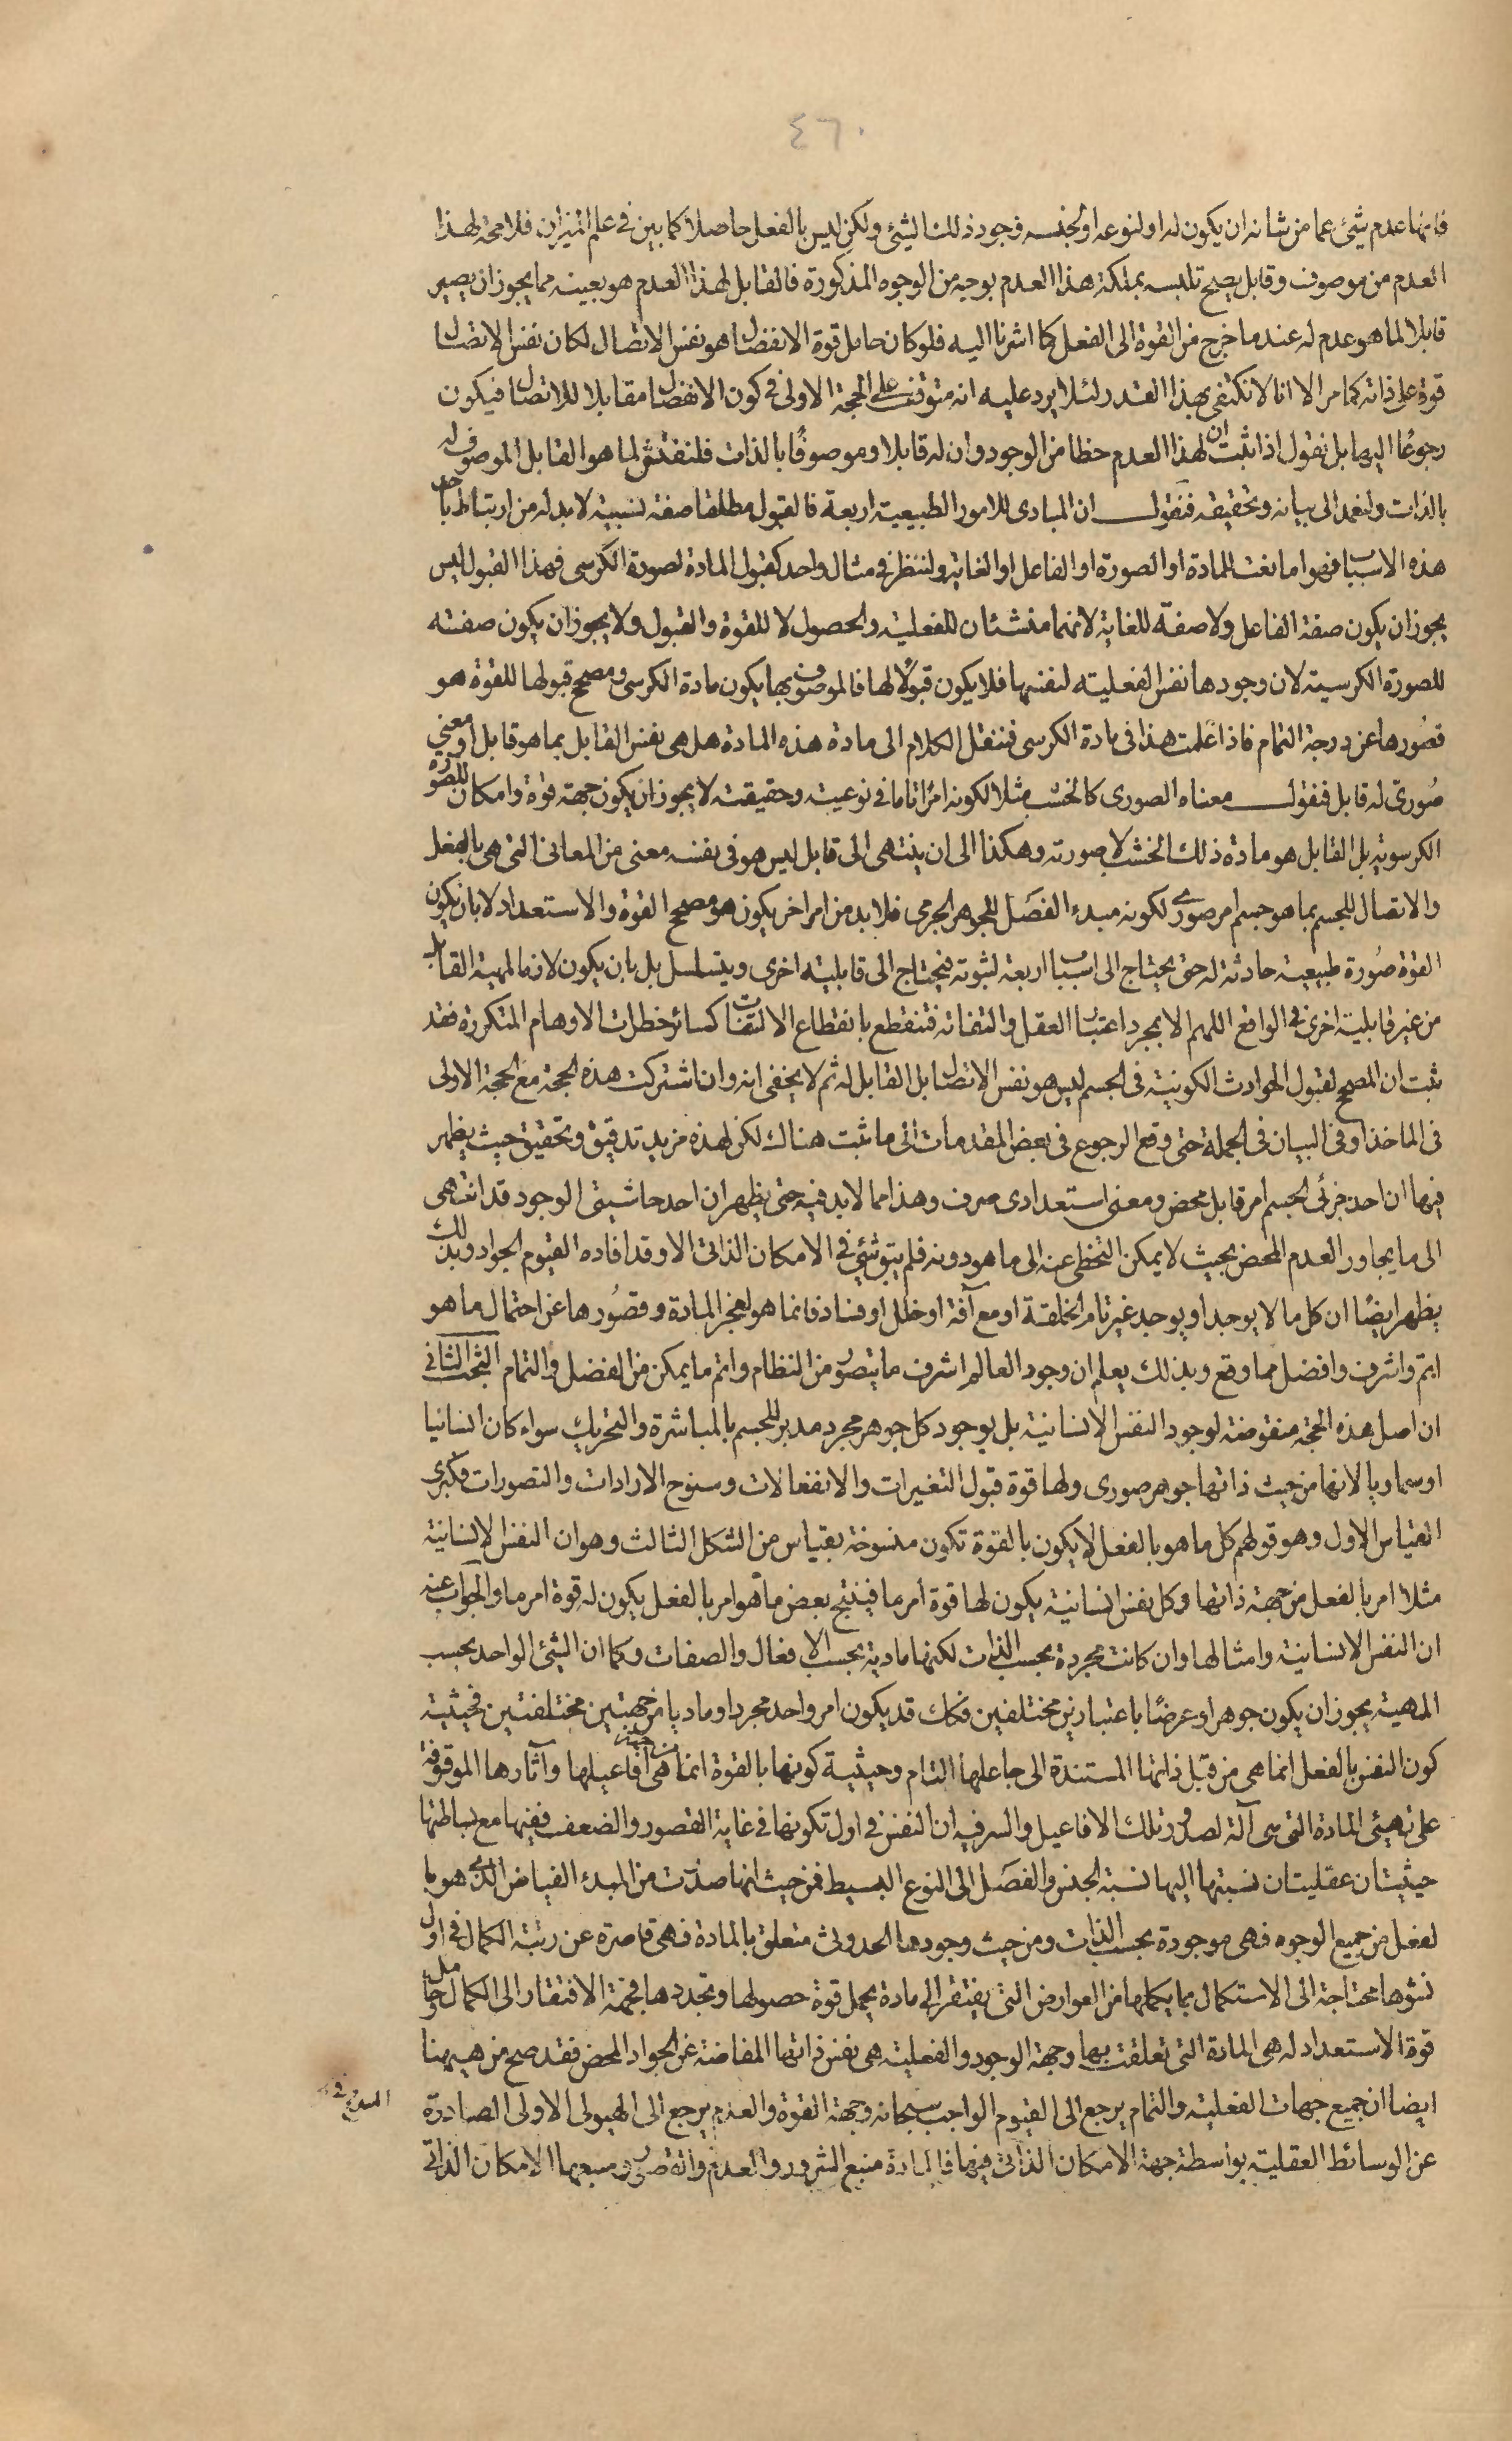 ٤٦٠
فانها عدم شيئ عما من شانه ان يكون له او لنوعه او لجنسه وجود ذلك الشيئ ولكن ليس بالفعل حاصلا كما بين فى علم الميزان فلا محة لهذا
العدم من موصوف وقابل يصح تلبسه بملكة هذا العدم بوجه من الوجوه المذكورة فالقابل لهذا العدم هو بعينه مما يجوز ان يصير
قابلا لما هو عدم له عند ما خرج من القوة الى الفعل كما اشرنا اليه فلو كان حامل قوة الانفصال هو نفس الاتصال لكان نفس الاتصال
قوة على ذاته كما مر الا انا لا نكتفى بهذا القدر لئلا يرد عليه انه متوقف على الحجة الاولى فى كون الانفصال مقابلا للاتصال فيكون
رجوعًا اليها بل نقول اذا ثبت ان لهذا العدم حظا من الوجود وان له قابلا وموصوفًا بالذات فلنفتش لما هو القابل الموصوف له
بالذات ولنعمد الى بيانه وتحقيقه فنقول ان المبادى للامور الطبيعية اربعة فالقبول مطلقا صفة نسبية لا بد له من ارتباط باحد
هذه الاسباب فهو اما نعت للمادة او الصورة او الفاعل او الغاية ولننظر فى مثال واحد كقبول المادة لصورة الكرسى فهذا القبول ليس
يجوز ان يكون صفة الفاعل ولا صفة للغاية لانهما منشئان للفعلية والحصول لا للقوة والقبول ولا يجوز ان يكون صفته
للصورة الكرسية لان وجودها نفس الفعلية لنفسها فلا يكون قبولًا لها فالموصوف بها يكون مادة الكرسى ومصحح قبولها للقوة هو
قصُورها عن درجة التمام فاذا علمت هذا فى مادة الكرسى فننقل الكلام الى مادة هذه المادة هل هى نفس القابل بما هو قابل او معنى
صُورى له قابل فنقول معناه الصورى كالخشب مثلا لكونه امرًا تاما فى نوعيته وحقيقته لا يجوز ان يكون جهة قوة وامكان للصورة
الكرسوية بل القابل هو مادة ذلك الخشب لا صورته وهكذا الى ان ينتهى الى قابل ليس هو فى نفسه معنى من المعانى التى هى بالفعل
والاتصال للجسم بما هو جسم امر صورى لكونه مبدء الفصل للجوهر الجرمى فلا بد من امر اخر يكون هو مصحح القوة والاستعداد لا بان يكون
القوة صُورة طبيعية حادثة له حتى يحتاج الى اسباب اربعة لثبوته فيحتاج الى قابلية اخرى ويتسلسل بل بان يكون لازما لمهية القابل
من غير قابلية اخرى فى الواقع اللهم الا بمجرد اعتبار العقل والتفاته فتنقطع بانقطاع الالتفات كسائر خطرات الاوهام المتكررة فقد
ثبت ان المصحح لقبول الحوادث الكونية فى الجسم ليس هو نفس الاتصال بل القابل له ثم لا يخفى انه وان اشتركت هذه الحجة مع الحجة الاولى
فى الماخذ او فى البيان فى الجملة حتى وقع الرجوع فى بعض المقدمات الى ما ثبت هناك لكن لهذه مزيد تدقيق وتحقيق حيث يظهر
فيها ان احد جزئى الجسم امر قابل محض ومعنى استعدادى صرف وهذا مما لا بد فيه حتى يظهر ان احد حاشيتى الوجود قد انتهى
الى ما يجاور العدم المحض بحيث لا يمكن التخطى عنه الى ما هو دونه فلم يبق شيئ فى الامكان الذاتى الا وقد افاده القيوم الجواد وبذلك
يظهر ايضًا ان كل ما لا يوجد او يوجد غير تام الخلقة او مع آفة او خلل او فساد فانما هو لعجز المادة وقصُورها عن احتمال ما هو
اتمّ واشرف وافضل مما وقع وبذلك يعلم ان وجود العالم اشرف ما يتصور من النظام واتم ما يمكن من الفضل والتمام البحث الثانى
ان اصل هذه الحجة منقوضة لوجود النفس الانسانية بل بوجود كل جوهر مجرد مدبر للجسم بالمباشرة والتحريك سواء كان انسانيا
او سماويا لانها من حيث ذاتها جوهر صورى ولها قوة قبول التغيرات والانفعالات وسنوح الارادات والتصورات فكبرى
القياس الاول وهو قولهم كل ما هو بالفعل لا يكون بالقوة تكون منسوخة بقياس من الشكل الثالث وهو ان النفس الانسانية
مثلا امر بالفعل من جهة ذاتها وكل نفس انسانية يكون لها قوة امر ما فينتج بعض ما هو امر بالفعل يكون له قوة امر ما والجواب عنه
ان النفس الانسانية وامثالها وان كانت مجردة بحسب الذات لكنها مادية بحسب الافعال والصفات وكما ان الشيئ الواحد بحسب
المهية يجوز ان يكون جوهرا وعرضًا باعتبارين مختلفين فكك قد يكون امر واحد مجردا وماديا من جهتين مختلفتين فحيثية
كون النفس بالفعل انما هى من قبل ذاتها المستندة الى جاعلها التام وحيثية كونها بالقوة انما هى من حيث افاعيلها وآثارها الموقوفة
على تهيئى المادة التى هى آلة لصدور تلك الافاعيل والسر فيه ان النفس فى اول تكونها فى غاية القصور والضعف ففيها مع بساطتها
حيثيتان عقليتان نسبتهما اليها نسبة الجنس والفصل الى النوع البسيط فمن حيث انها صدرت من المبدء الفياض الذى هو با
لفعل من جميع الوجوه فهى موجودة بحسب الذات ومن حيث وجودها الحدوث متعلق بالمادة فهى قاصرة عن رتبة الكمال فى اول
نشوها محتاجة الى الاستكمال بما يكملها من العوارض التى يفتقر الى مادة يحمل قوة حصولها وتجددها فجهة الافتقار الى الكمال وحامل
قوة الاستعداد له هى المادة التى تعلقت بها وجهة الوجود والفعلية هى نفس ذاتها المفاضة عن الجواد المحض فقد صح من هيهنا
ايضا ان جميع جهات الفعلية والتمام يرجع الى القيوم الواجب سبحانه وجهة القوة والعدم يرجع الى الهيولى الاولى الصادرة
عن الوسائط العقلية بواسطة جهة الامكان الذاتى فيها فالمادة منبع الشرور والعدم والقصور ومنبعها الامكان الذاتى